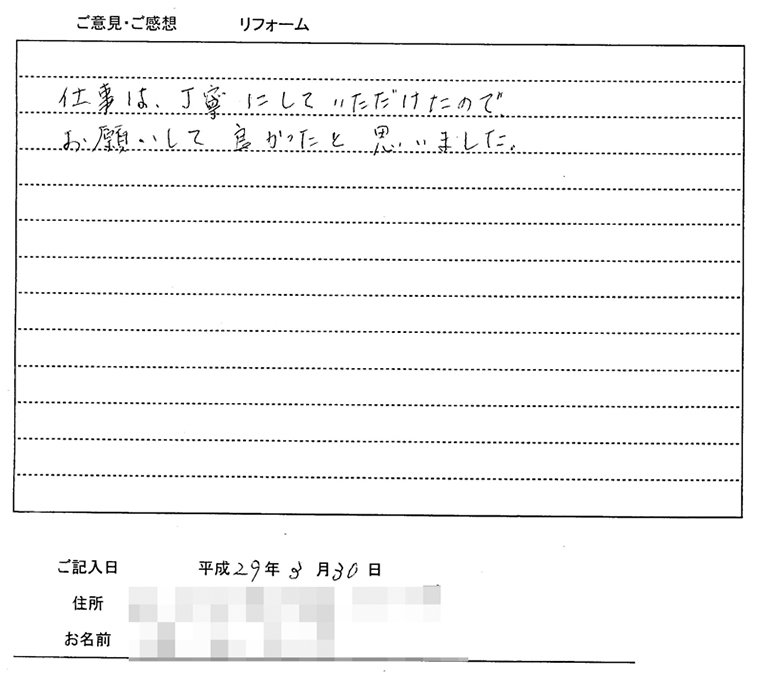 ご意見・ご感想 リフォーム
仕事は、丁寧にしていただけたので、
お願いして良かったと思いました。
ご記入日 平成29年3月30日
住所
お名前